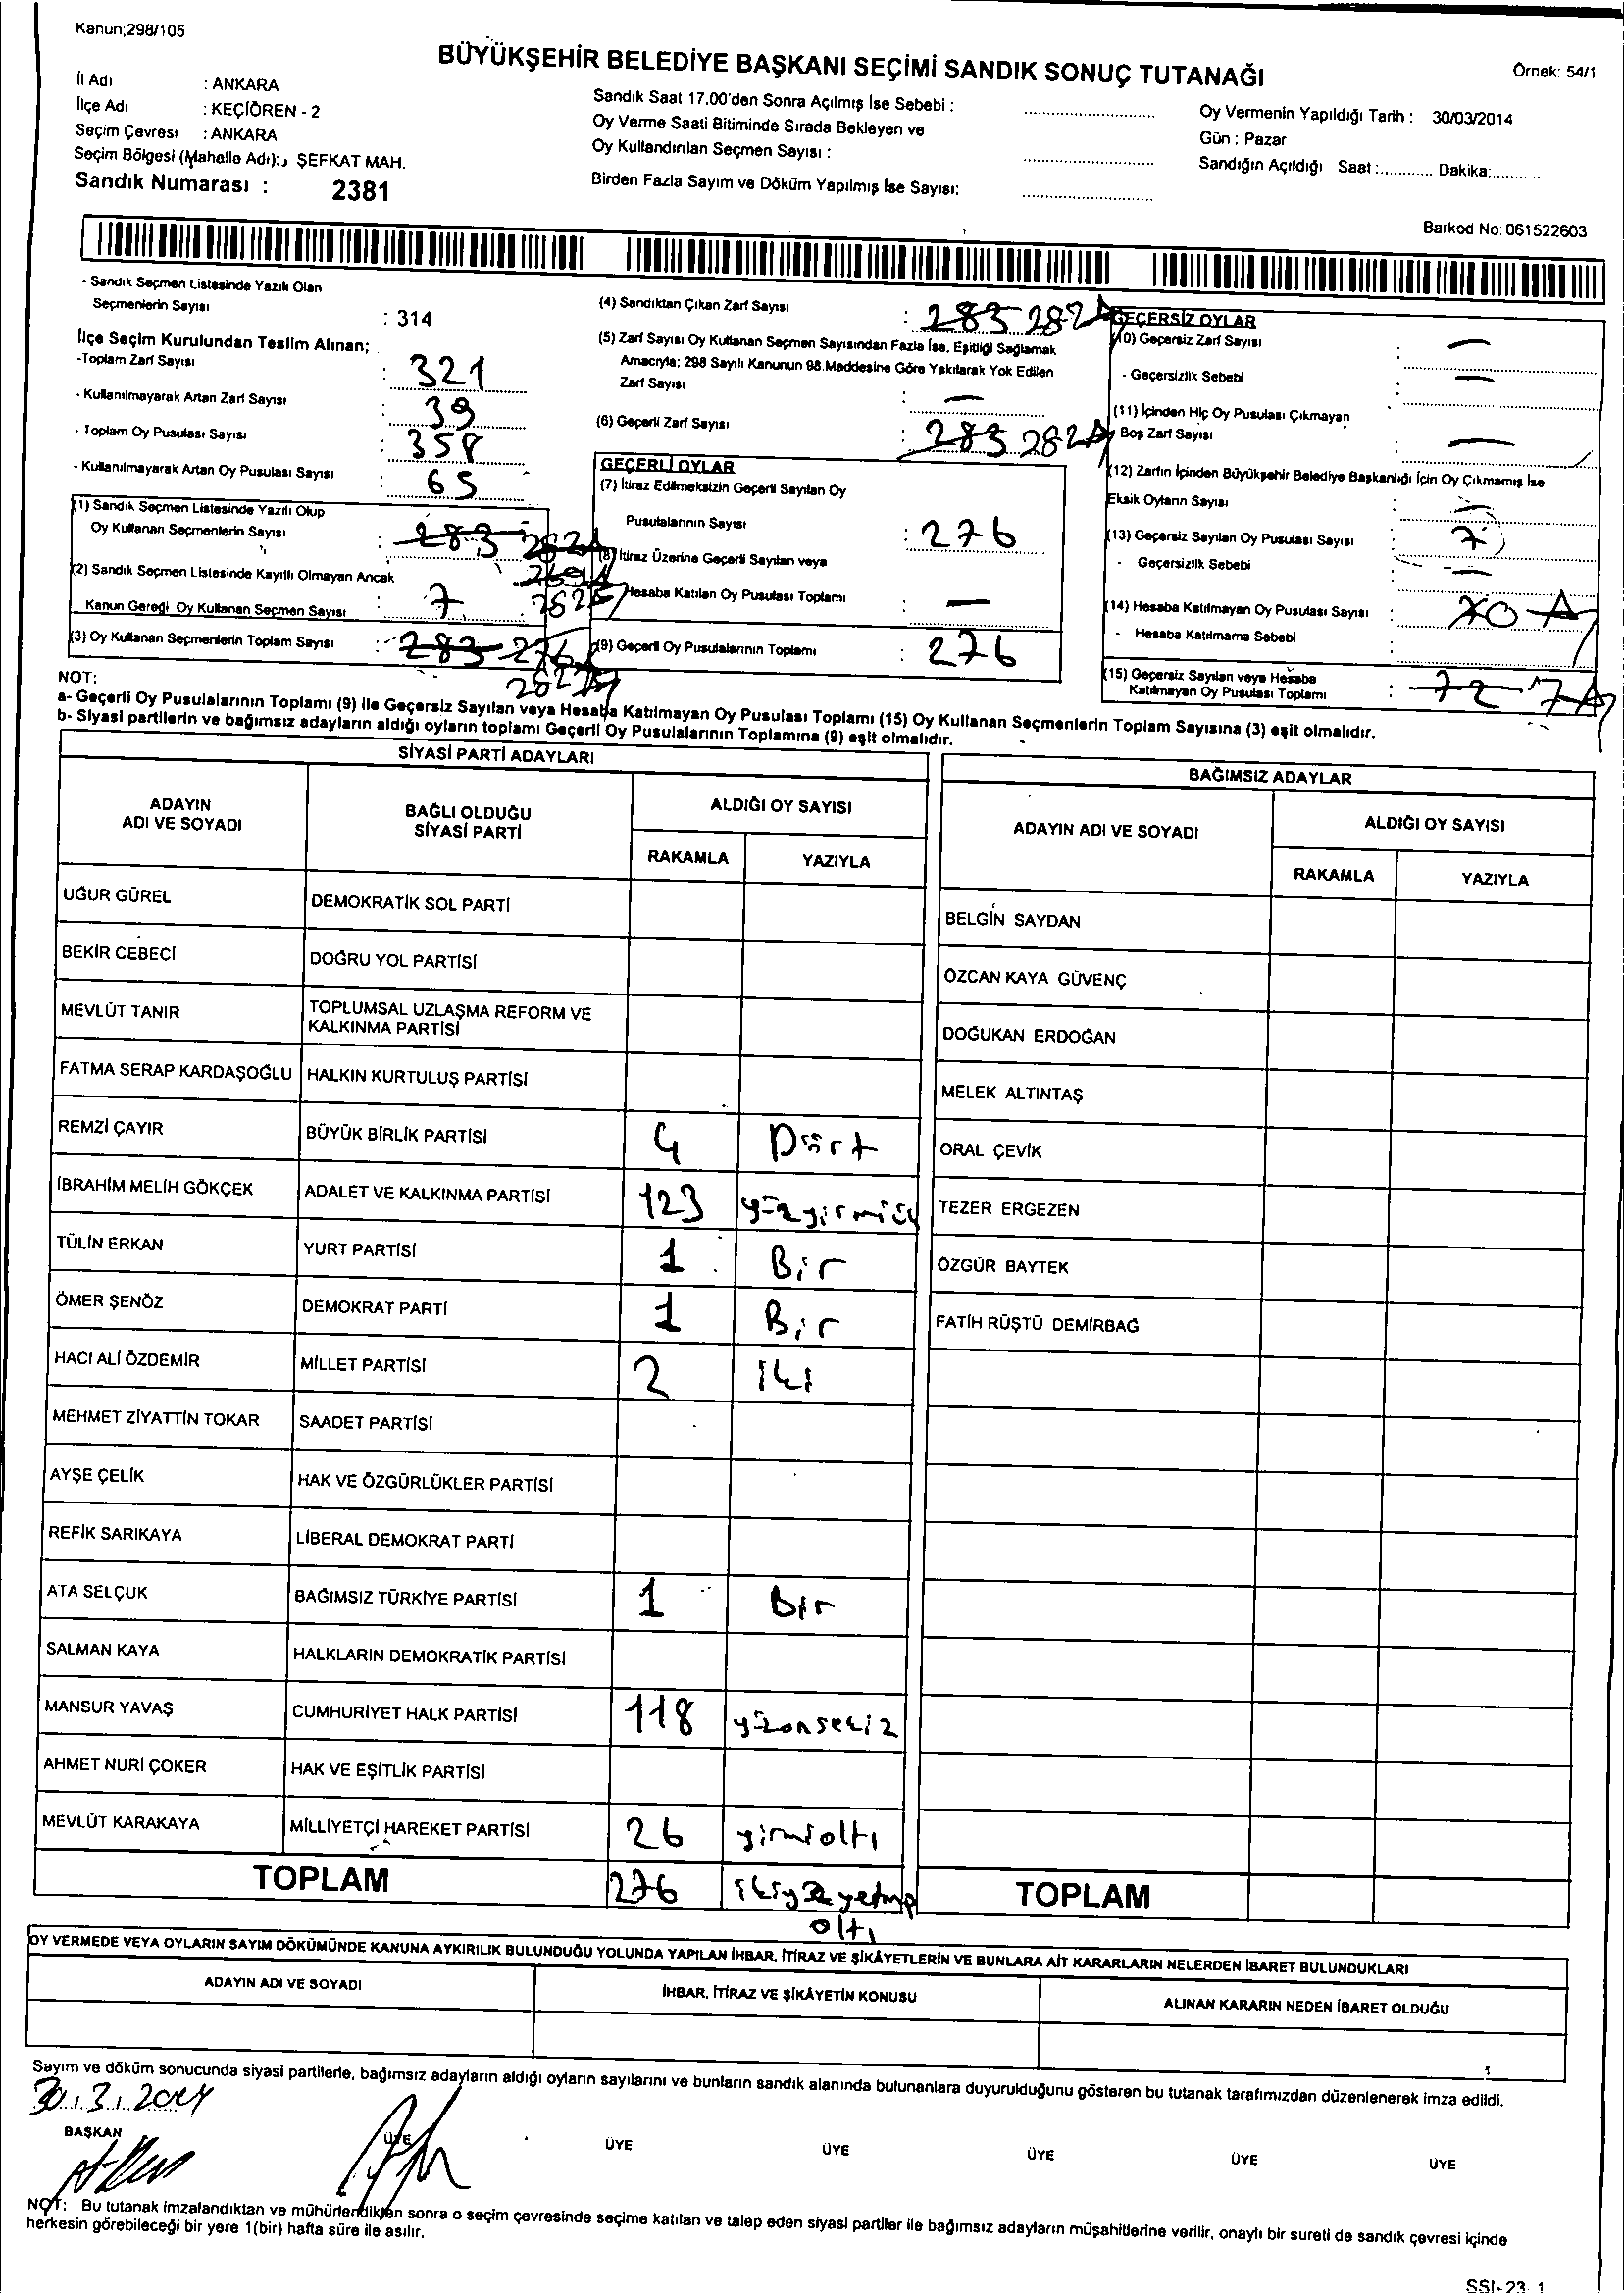 Kanun;298/105
BÜYÜKŞEHİR BELEDİYE BAŞKANI SEÇİMİ SANDIK SONUÇ TUTANAĞI
Örnek: 54/1
İl Adı : ANKARA
İlçe Adı : KEÇİÖREN - 2
Seçim Çevresi : ANKARA
Seçim Bölgesi (Mahalle Adı): ŞEFKAT MAH.
Sandık Numarası : 2381
Sandık Saat 17.00'den Sonra Açılmış İse Sebebi :
Oy Verme Saati Bitiminde Sırada Bekleyen ve
Oy Kullandırılan Seçmen Sayısı :
Birden Fazla Sayım ve Döküm Yapılmış İse Sayısı:
Oy Vermenin Yapıldığı Tarih : 30/03/2014
Gün : Pazar
Sandığın Açıldığı Saat :............ Dakika:............
Barkod No: 061522603
- Sandık Seçmen Listesinde Yazılı Olan
Seçmenlerin Sayısı : 314
İlçe Seçim Kurulundan Teslim Alınan;
-Toplam Zarf Sayısı : 321
- Kullanılmayarak Artan Zarf Sayısı : 39
- Toplam Oy Pusulası Sayısı : 358
- Kullanılmayarak Artan Oy Pusulası Sayısı : 65
(1) Sandık Seçmen Listesinde Yazılı Olup
Oy Kullanan Seçmenlerin Sayısı : 283 282
(2) Sandık Seçmen Listesinde Kayıtlı Olmayan Ancak
Kanun Gereği Oy Kullanan Seçmen Sayısı : 7
(3) Oy Kullanan Seçmenlerin Toplam Sayısı : 283 276
282
(4) Sandıktan Çıkan Zarf Sayısı : 283 282
(5) Zarf Sayısı Oy Kullanan Seçmen Sayısından Fazla İse, Eşitliği Sağlamak
Amacıyla; 298 Sayılı Kanunun 98.Maddesine Göre Yakılarak Yok Edilen
Zarf Sayısı : —
(6) Geçerli Zarf Sayısı : 283 282
GEÇERLİ OYLAR
(7) İtiraz Edilmeksizin Geçerli Sayılan Oy
Pusulalarının Sayısı : 276
(8) İtiraz Üzerine Geçerli Sayılan veya
Hesaba Katılan Oy Pusulası Toplamı : —
(9) Geçerli Oy Pusulalarının Toplamı : 276
GEÇERSİZ OYLAR
(10) Geçersiz Zarf Sayısı : —
- Geçersizlik Sebebi : —
(11) İçinden Hiç Oy Pusulası Çıkmayan
Boş Zarf Sayısı : —
(12) Zarfın İçinden Büyükşehir Belediye Başkanlığı İçin Oy Çıkmamış İse
Eksik Oyların Sayısı : —
(13) Geçersiz Sayılan Oy Pusulası Sayısı : 7
- Geçersizlik Sebebi : —
(14) Hesaba Katılmayan Oy Pusulası Sayısı :
- Hesaba Katılmama Sebebi :
(15) Geçersiz Sayılan veya Hesaba
Katılmayan Oy Pusulası Toplamı : 72 7
NOT:
a- Geçerli Oy Pusulalarının Toplamı (9) ile Geçersiz Sayılan veya Hesaba Katılmayan Oy Pusulası Toplamı (15) Oy Kullanan Seçmenlerin Toplam Sayısına (3) eşit olmalıdır.
b- Siyasi partilerin ve bağımsız adayların aldığı oyların toplamı Geçerli Oy Pusulalarının Toplamına (9) eşit olmalıdır.
SİYASİ PARTİ ADAYLARI
ADAYIN ADI VE SOYADI
BAĞLI OLDUĞU SİYASİ PARTİ
ALDIĞI OY SAYISI
RAKAMLA YAZIYLA
UĞUR GÜREL DEMOKRATİK SOL PARTİ
BEKİR CEBECİ DOĞRU YOL PARTİSİ
MEVLÜT TANIR TOPLUMSAL UZLAŞMA REFORM VE
KALKINMA PARTİSİ
FATMA SERAP KARDAŞOĞLU HALKIN KURTULUŞ PARTİSİ
REMZİ ÇAYIR BÜYÜK BİRLİK PARTİSİ 4 Dört
İBRAHİM MELİH GÖKÇEK ADALET VE KALKINMA PARTİSİ 123 yüzyirmiüç
TÜLİN ERKAN YURT PARTİSİ 1 Bir
ÖMER ŞENÖZ DEMOKRAT PARTİ 1 Bir
HACI ALİ ÖZDEMİR MİLLET PARTİSİ 2 iki
MEHMET ZİYATTİN TOKAR SAADET PARTİSİ
AYŞE ÇELİK HAK VE ÖZGÜRLÜKLER PARTİSİ
REFİK SARIKAYA LİBERAL DEMOKRAT PARTİ
ATA SELÇUK BAĞIMSIZ TÜRKİYE PARTİSİ 1 Bir
SALMAN KAYA HALKLARIN DEMOKRATİK PARTİSİ
MANSUR YAVAŞ CUMHURİYET HALK PARTİSİ 118 yüzonsekiz
AHMET NURİ ÇOKER HAK VE EŞİTLİK PARTİSİ
MEVLÜT KARAKAYA MİLLİYETÇİ HAREKET PARTİSİ 26 yirmialtı
TOPLAM 276 ikiyüzyetmiş
altı
BAĞIMSIZ ADAYLAR
ADAYIN ADI VE SOYADI
ALDIĞI OY SAYISI
RAKAMLA YAZIYLA
BELGİN SAYDAN
ÖZCAN KAYA GÜVENÇ
DOĞUKAN ERDOĞAN
MELEK ALTINTAŞ
ORAL ÇEVİK
TEZER ERGEZEN
ÖZGÜR BAYTEK
FATİH RÜŞTÜ DEMİRBAĞ
TOPLAM
OY VERMEDE VEYA OYLARIN SAYIM DÖKÜMÜNDE KANUNA AYKIRILIK BULUNDUĞU YOLUNDA YAPILAN İHBAR, İTİRAZ VE ŞİKÂYETLERİN VE BUNLARA AİT KARARLARIN NELERDEN İBARET BULUNDUKLARI
ADAYIN ADI VE SOYADI
İHBAR, İTİRAZ VE ŞİKÂYETİN KONUSU
ALINAN KARARIN NEDEN İBARET OLDUĞU
Sayım ve döküm sonucunda siyasi partilerle, bağımsız adayların aldığı oyların sayılarını ve bunların sandık alanında bulunanlara duyurulduğunu gösteren bu tutanak tarafımızdan düzenlenerek imza edildi.
30.3.2014
BAŞKAN ÜYE ÜYE ÜYE ÜYE ÜYE ÜYE
NOT: Bu tutanak imzalandıktan ve mühürlendikten sonra o seçim çevresinde seçime katılan ve talep eden siyasi partiler ile bağımsız adayların müşahitlerine verilir, onaylı bir sureti de sandık çevresi içinde
herkesin görebileceği bir yere 1(bir) hafta süre ile asılır.
SSI- 23. 1